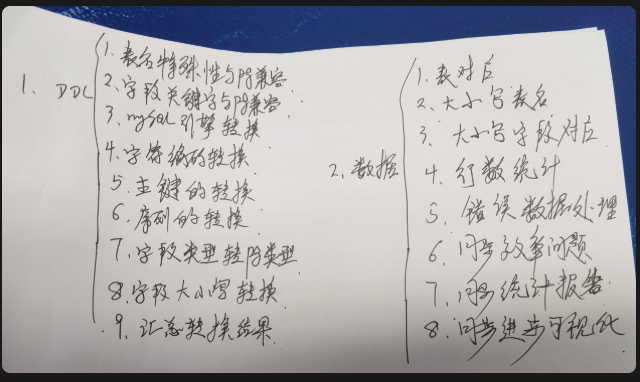 1. DDL
1. 表名特殊性与pg兼容
2. 字段关键字与pg兼容
3. mysql引擎转换
4. 字符编码转换
5. 主键的转换
6. 序列的转换
7. 字段类型转pg类型
8. 字段大小写转换
9. 汇总转换结果
2. 数据
1. 表对应
2. 大小写表名
3. 大小写字段对应
4. 行数统计
5. 错误数据处理
6. 同步效率问题
7. 同步统计报告
8. 同步进步可视化